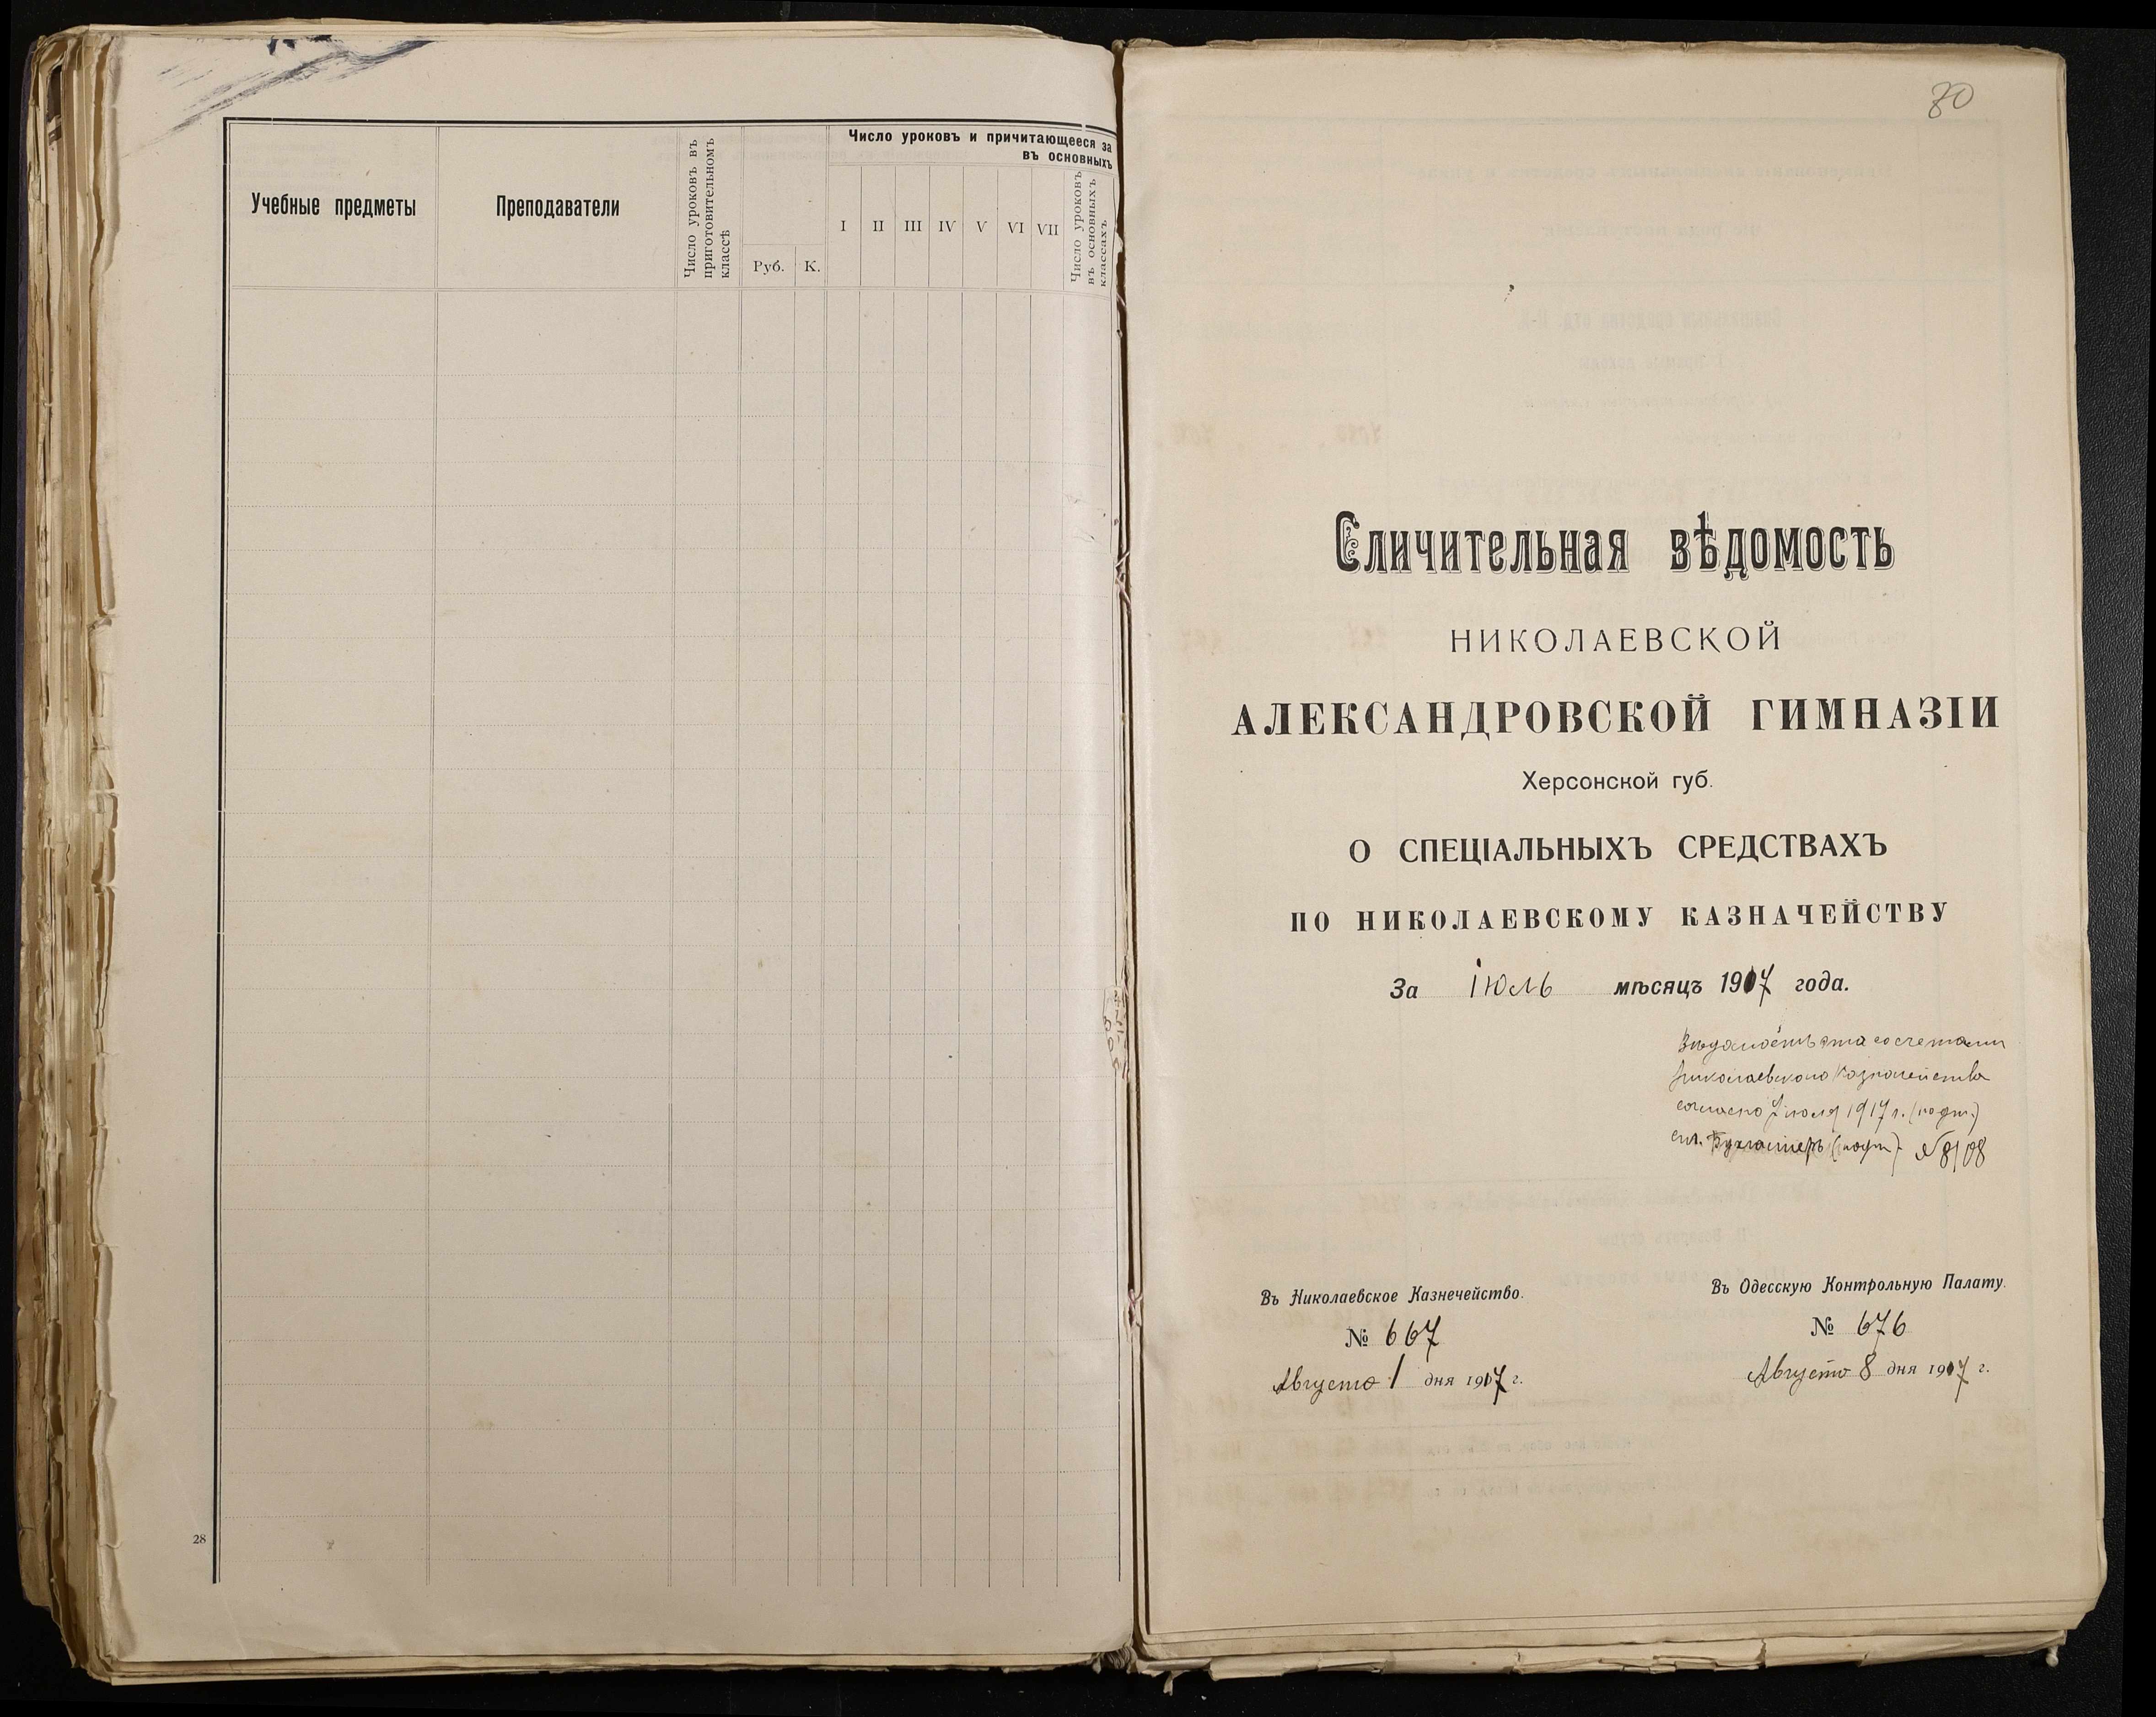 Учебные предметы
Преподаватели
Число уроковъ въ
приготовительномъ
классѣ
Руб.
К.
Число уроковъ и причитающееся за
въ основныхъ
I
II
III
IV
V
VI
VII
Число уроковъ
въ основныхъ
классахъ
28
80
Сличительная вѣдомость
НИКОЛАЕВСКОЙ
АЛЕКСАНДРОВСКОЙ ГИМНАЗІИ
Херсонской губ.
О СПЕЦІАЛЬНЫХЪ СРЕДСТВАХЪ
ПО НИКОЛАЕВСКОМУ КАЗНАЧЕЙСТВУ
За іюль мѣсяцъ 1917 года.
Вѣдомость эта со счетами
Николаевского Казначейства
согласно 1917 г. (подп.)
Бухгалтеръ (подп.) № 8108
Въ Николаевское Казнечейство.
№ 667
Августа 1 дня 1917 г.
Въ Одесскую Контрольную Палату.
№ 676
Августа 8 дня 1917 г.